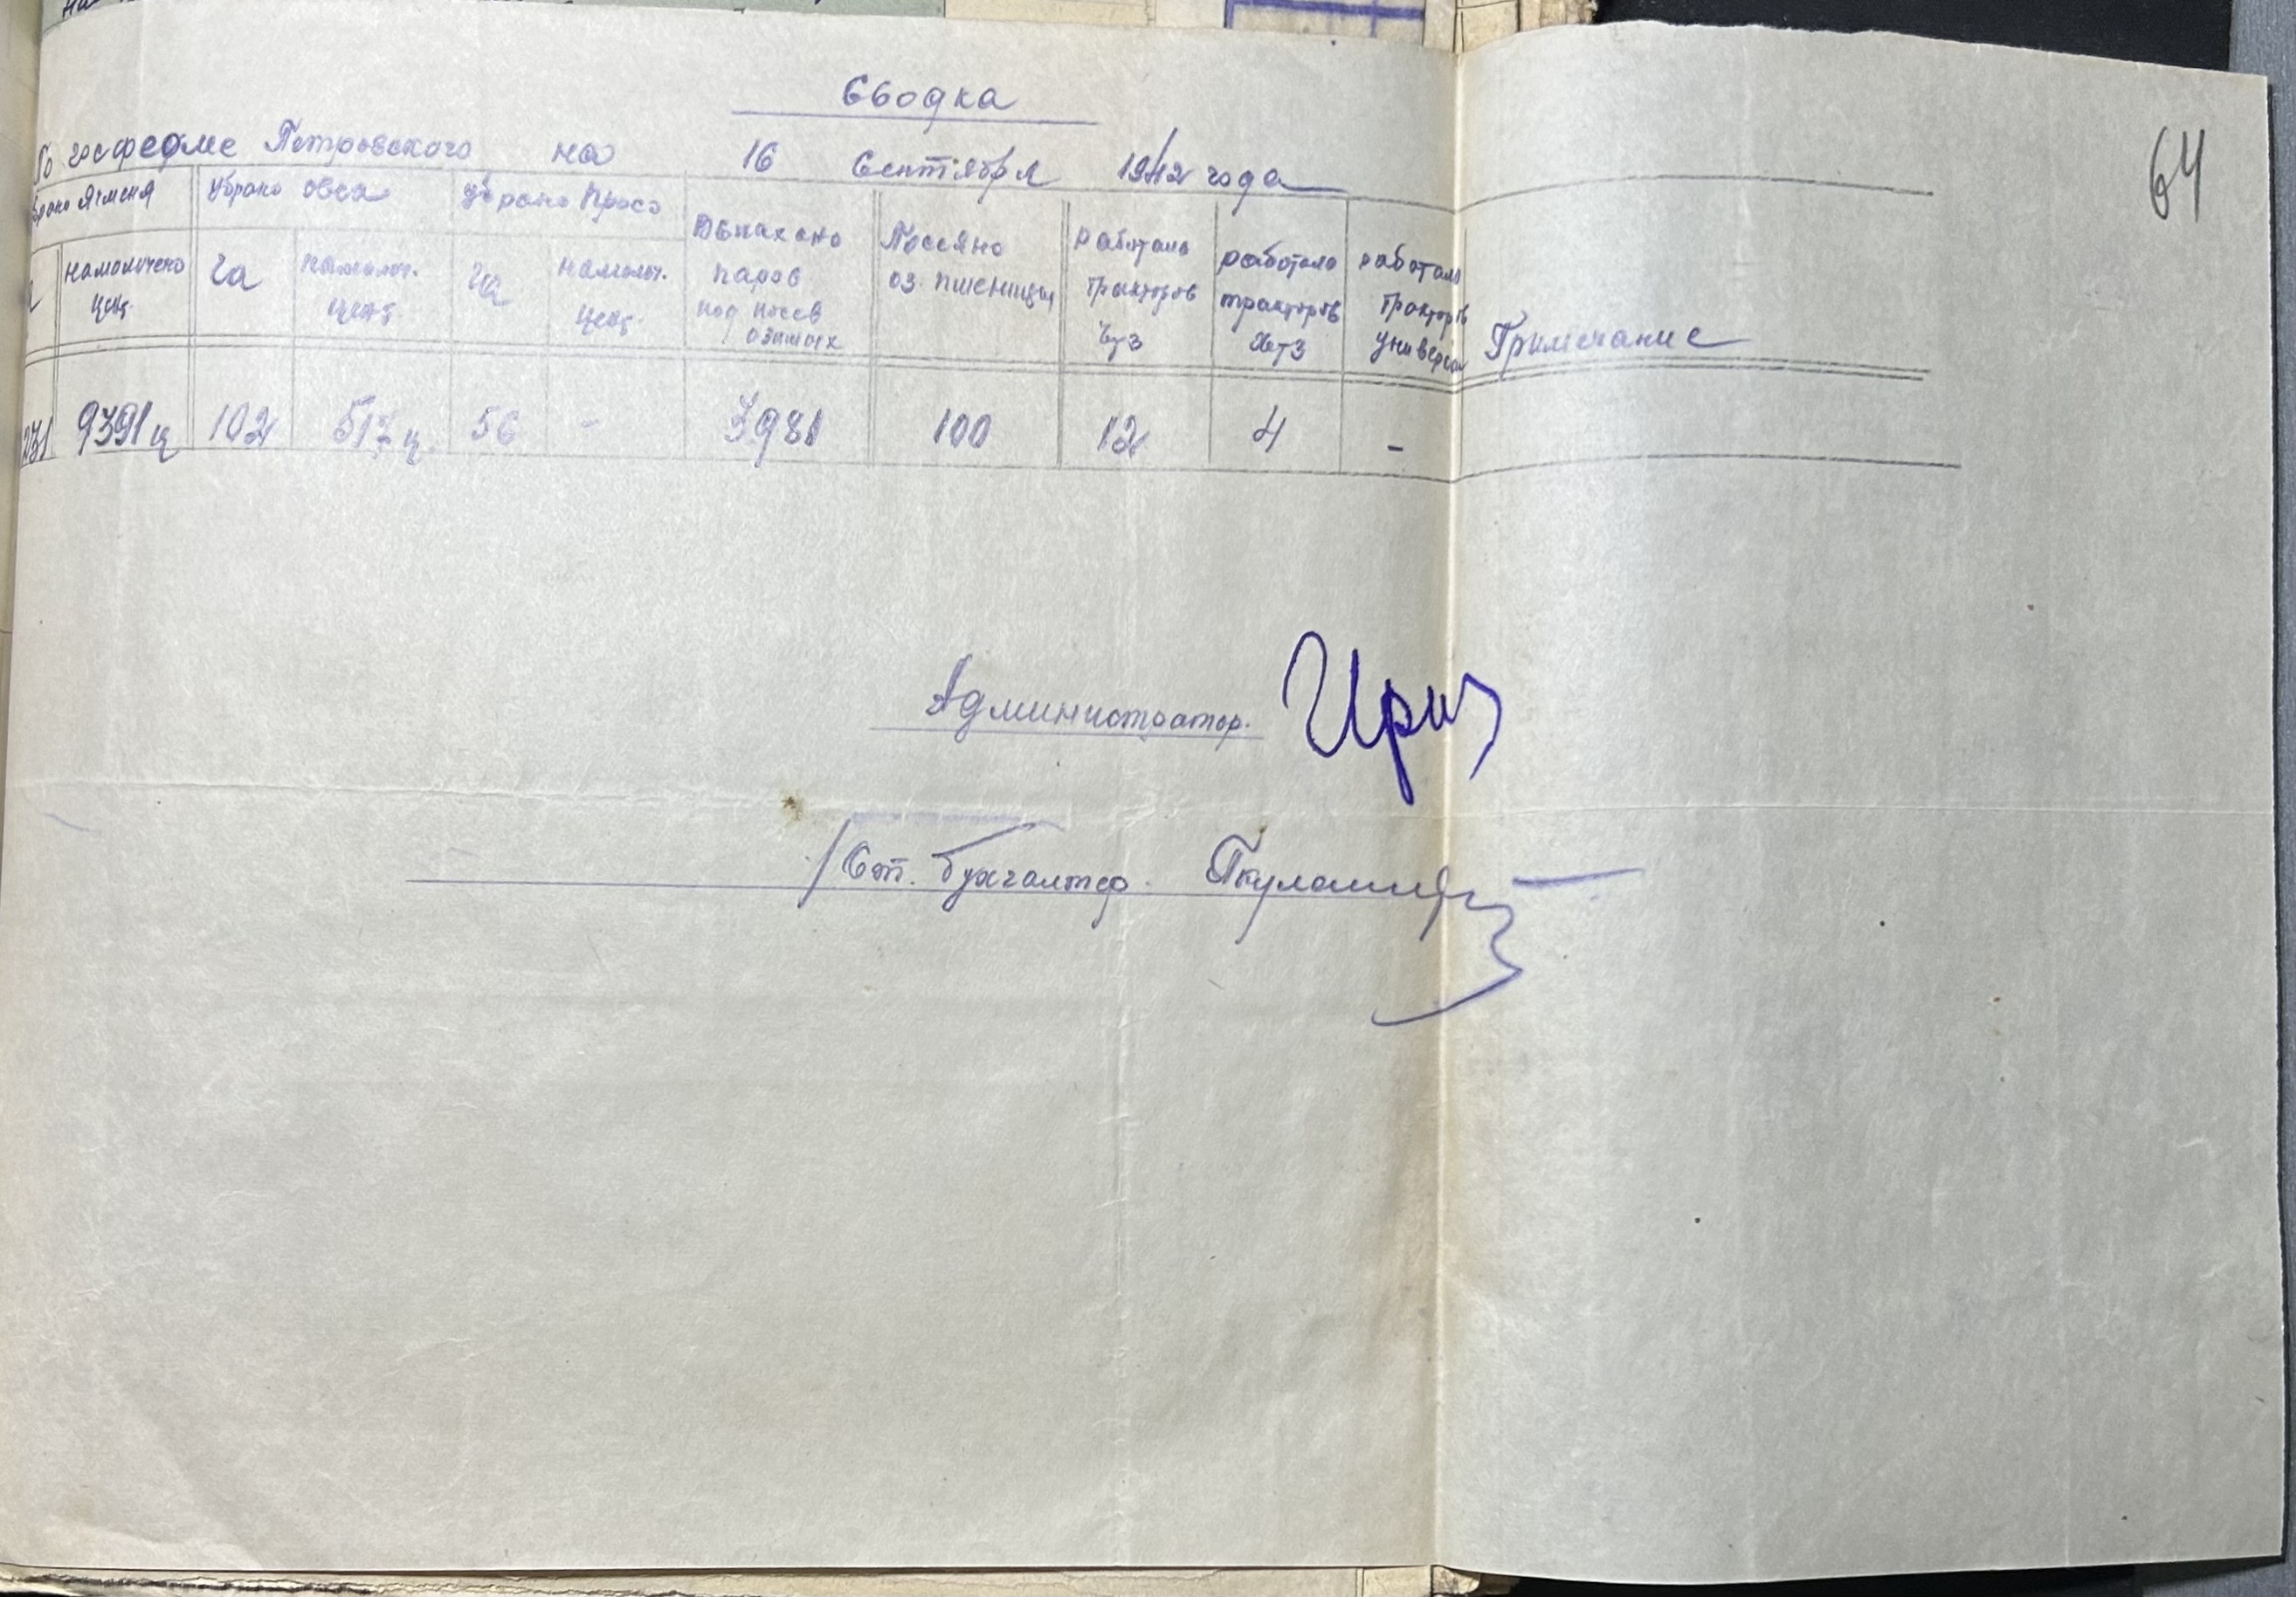 64
Сводка
По госферме Петровского на 16 Сентября 1942 года
Убрано Ячменя Убрано Овса Убрано Просо Вспахано паров под посев озимых Посеяно оз. пшеницы Работало тракторов ЧТЗ работало тракторов ХТЗ работало тракторов универсал Примечание
намолочено цент. га намолоч. цент. га намолоч. цент.
9391 ц 102 517 ц. 56 - 3981 100 12 4 -
Администратор.
/Ст. бухгалтер.